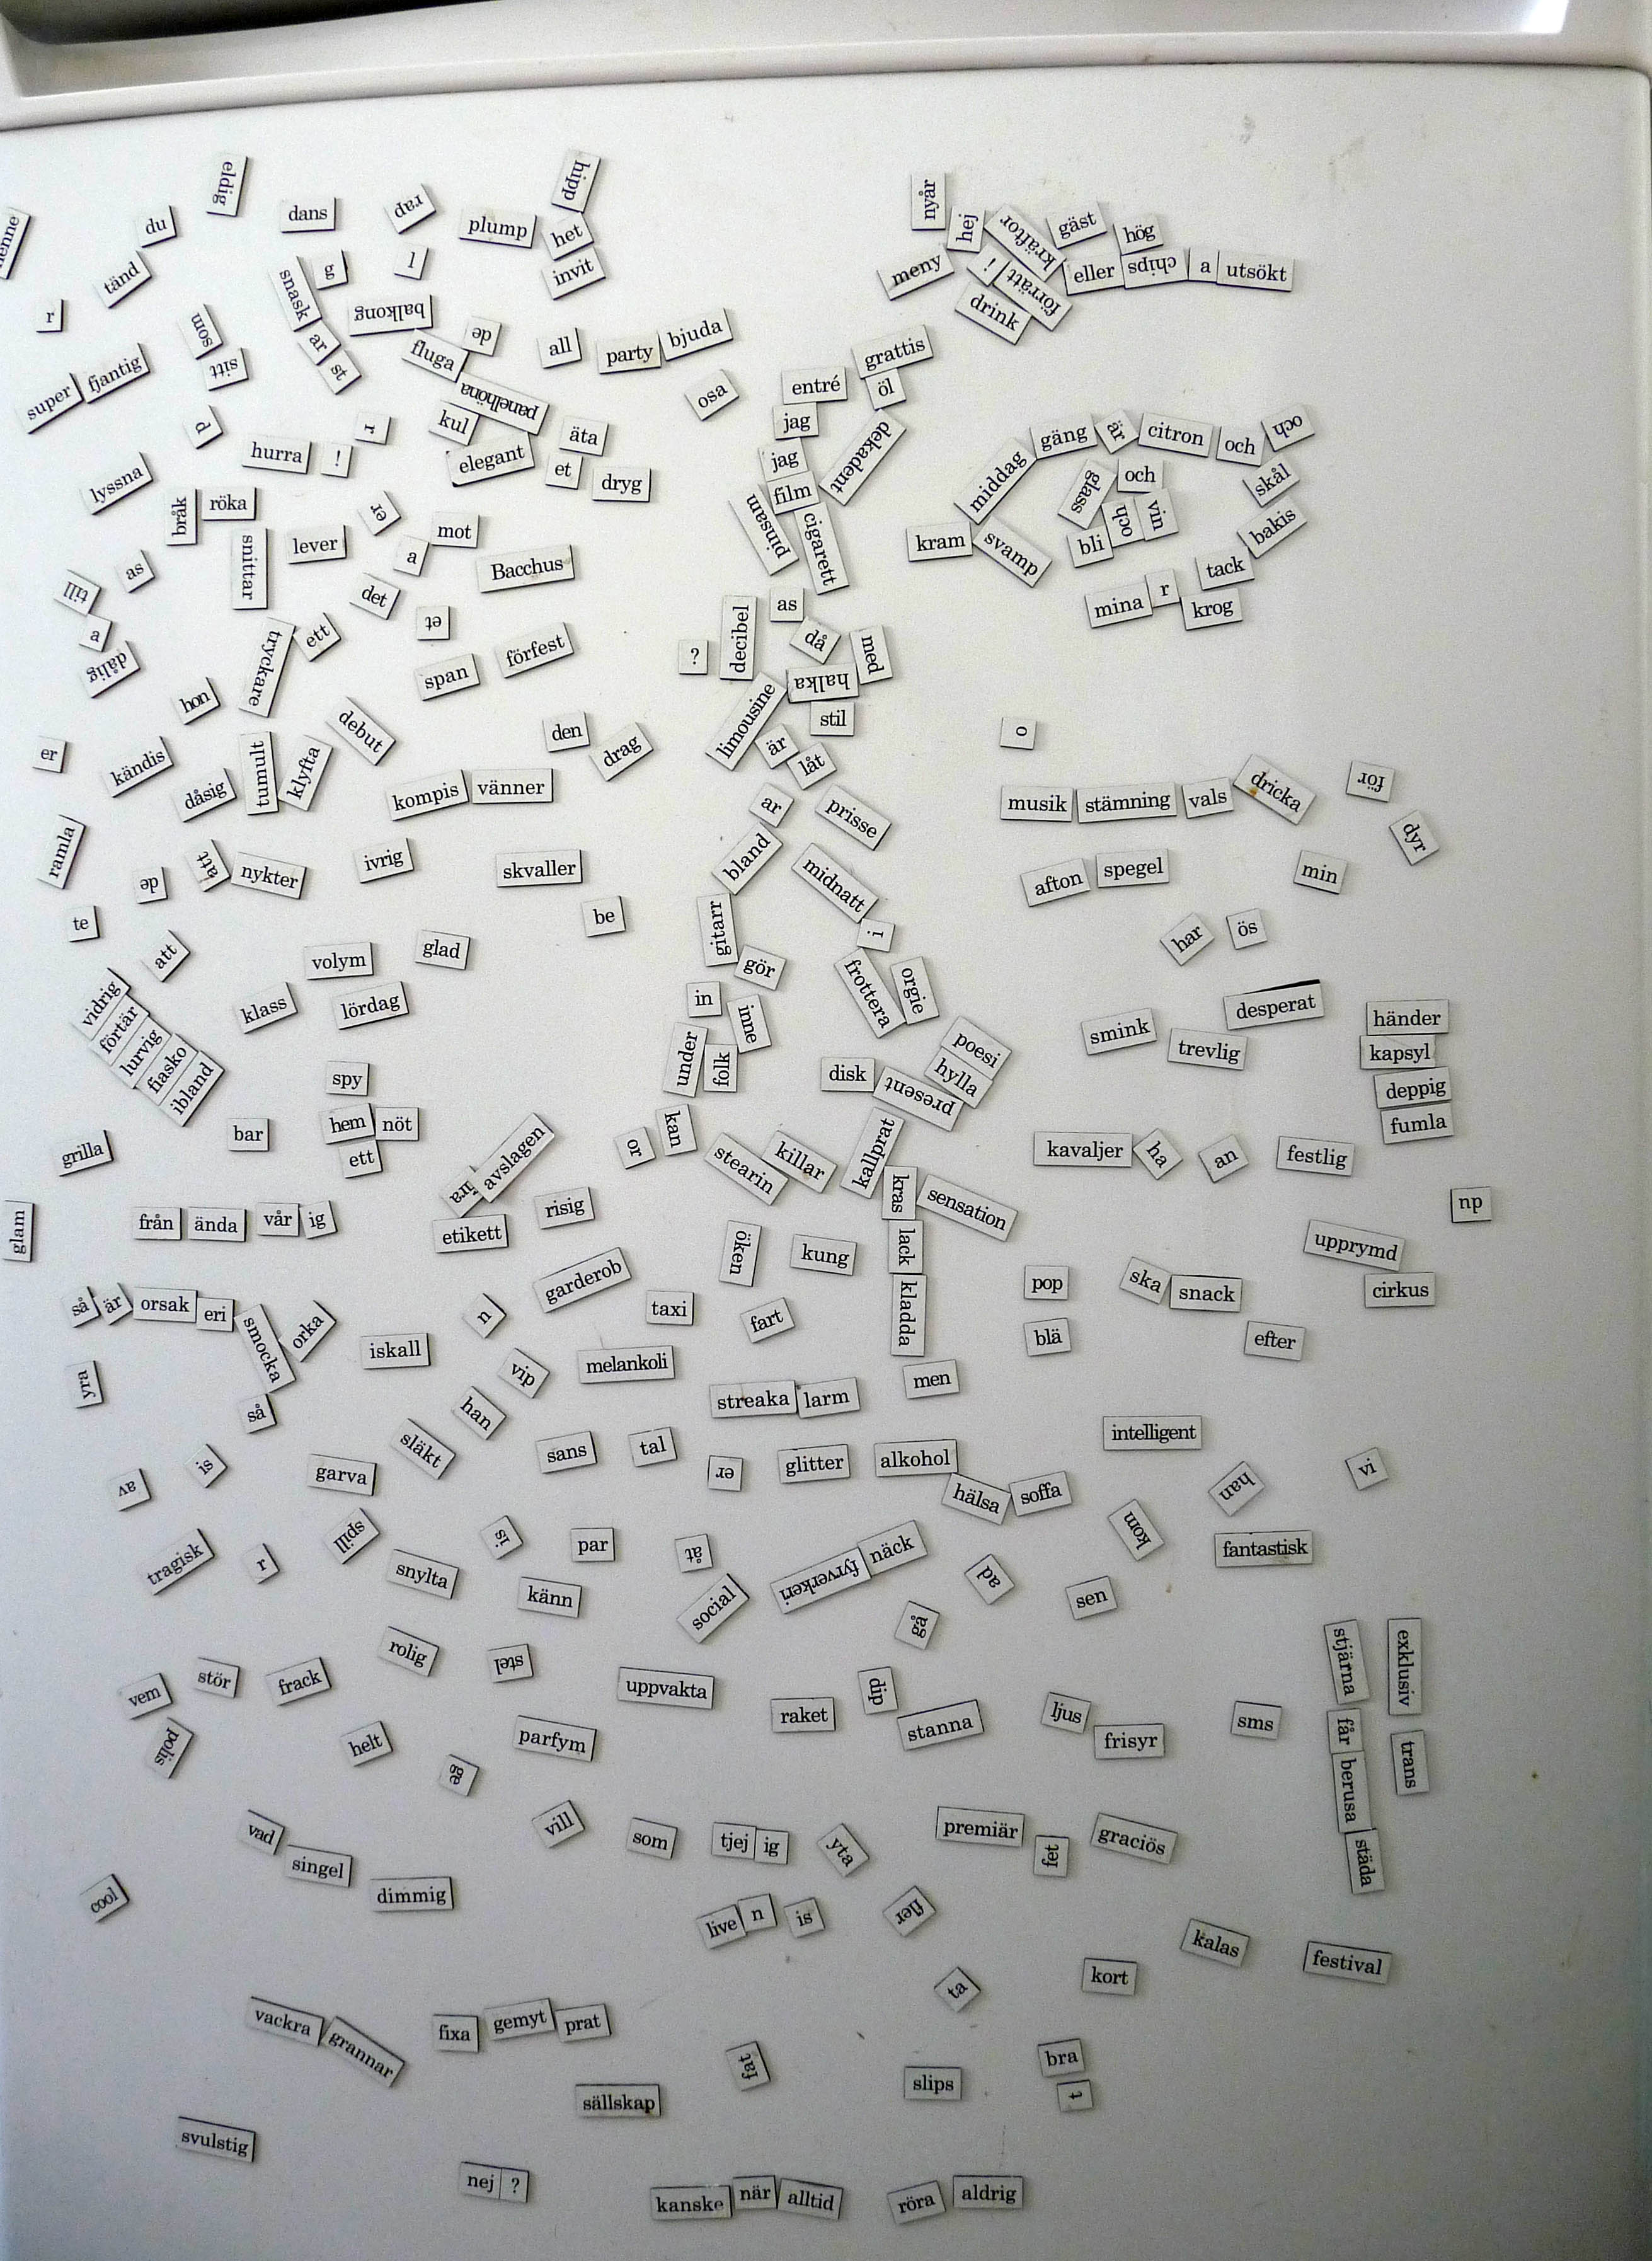 eldig
hipp
dans
rap
du
plump
het
nyår
hej
kräftor
gäst
hög
tänd
snask
g
l
invit
meny
!
förrätt
eller chips a utsökt
r
balkong
drink
som
ar
st
fluga
de
all
party bjuda
grattis
super fjantig
sitt
panelhöna
osa
entré
öl
d
r
kul
äta
jag
dekadent
hurra !
elegant
et
dryg
jag
film
middag gäng är citron och och
lyssna
bråk
röka
er
mot
pinsam
cigarett
glass
och
skål
snittar
lever
a
Bacchus
kram
svamp
bli
och
vin
bakis
till
as
det
et
as
mina r krog
tack
a
dålig
tryckare
ett
span
förfest
?
decibel
då
med
hon
debut
halka
limousine
stil
er
kändis
dåsig
tumult
klyfta
den
drag
är
låt
o
kompis vänner
ar
prisse
musik stämning vals dricka
för
dyr
ramla
de
att
nykter
ivrig
skvaller
bland
midnatt
afton spegel
min
te
att
be
gitarr
i
har
ös
volym
glad
gör
frottera
orgie
vidrig
förtär
lurvig
fiasko
ibland
klass
lördag
in
inne
smink
trevlig
desperat
händer
kapsyl
deppig
fumla
spy
under
folk
disk
present
poesi
hylla
grilla
bar
hem nöt
ett
avslagen
or
kan
stearin
killar
kallprat
kavaljer
ha
an
festlig
glam
från ända vår ig
etikett
risig
kras
sensation
np
öken
kung
lack
upprymd
garderob
pop
ska
snack
cirkus
så är orsak eri
smocka
orka
n
taxi
fart
kladda
iskall
blä
efter
yra
vip
melankoli
men
så
han
streaka larm
släkt
sans
tal
intelligent
av
is
garva
er
glitter
alkohol
hälsa soffa
han
vi
tragisk
r
spill
si
par
åt
kom
fantastisk
snylta
känn
social
fyrverkeri näck
ad
sen
gå
rolig
stel
stjärna
exklusiv
vem
stör
frack
uppvakta
dip
raket
stanna
ljus
frisyr
sms
får
trans
polis
helt
parfym
ge
berusa
vad
singel
vill
som
tjej ig
yta
premiär
fet
graciös
städa
cool
dimmig
live n
is
fler
kalas
festival
ta
kort
vackra grannar
fixa
gemyt prat
fat
bra
slips
t
sällskap
svulstig
nej ?
kanske när alltid
röra
aldrig